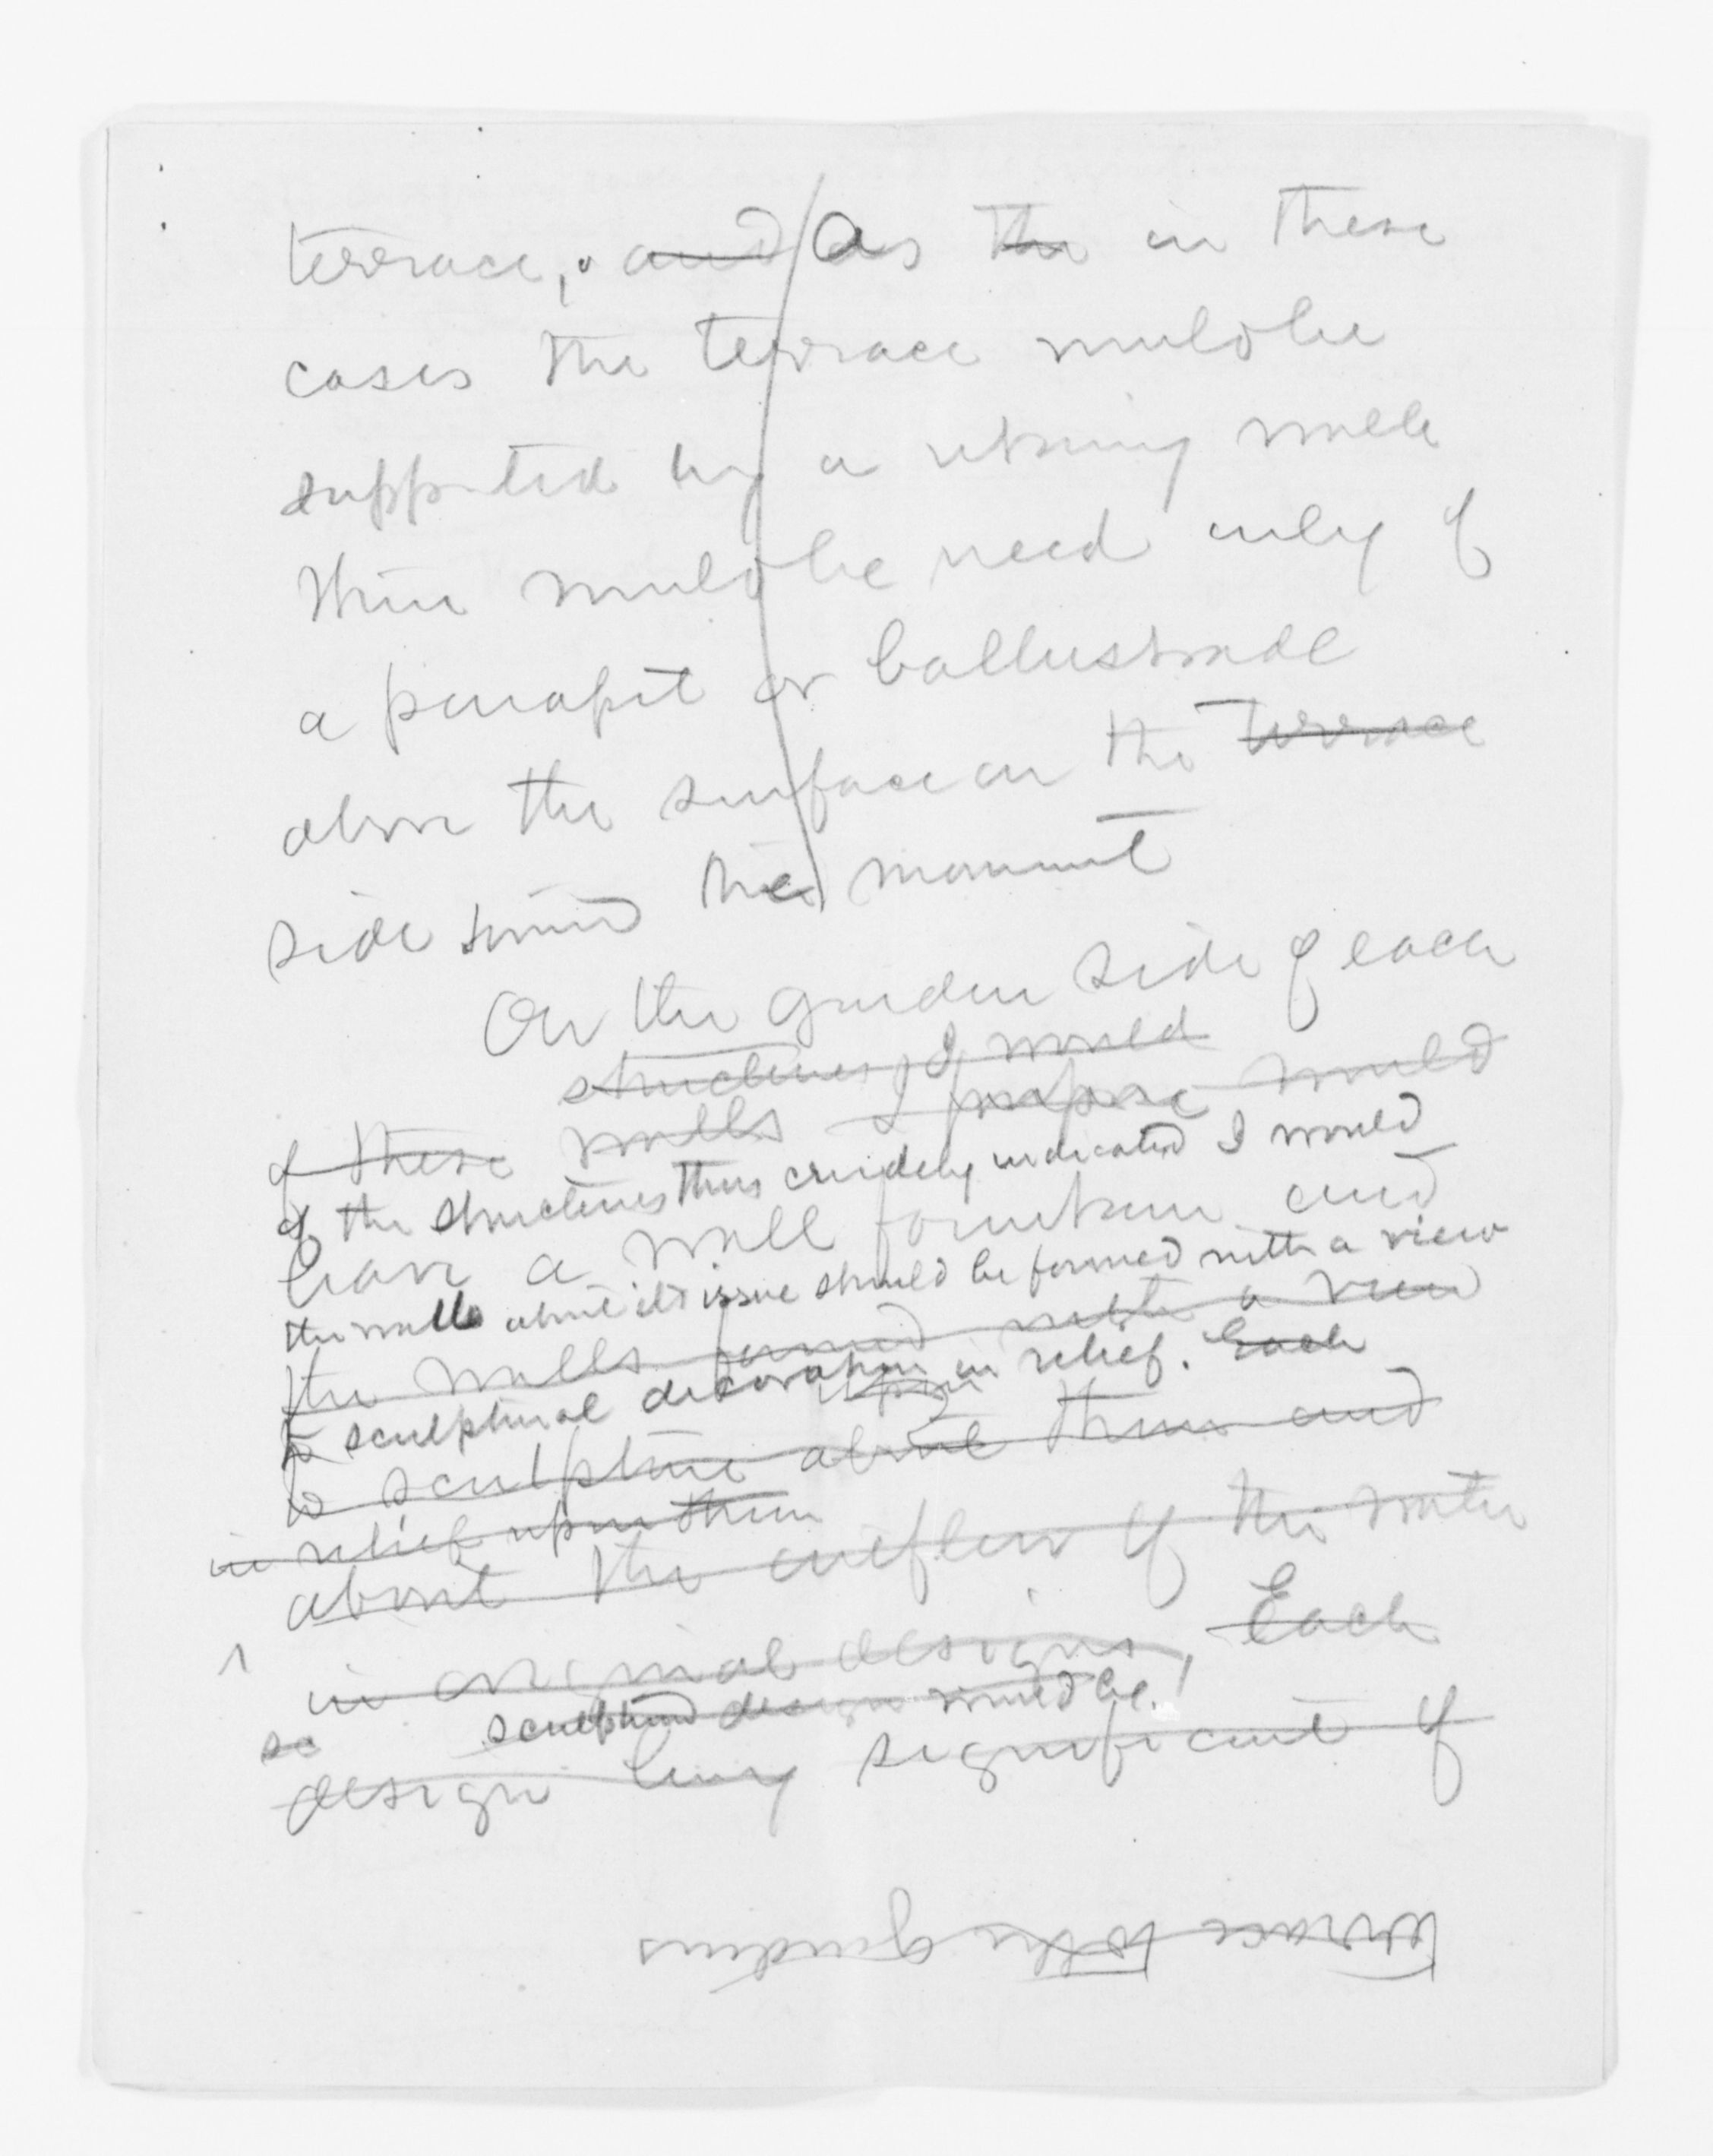 terrace, and As the in these
cases the terrace would be
supported by a retaining walls
there would be need only of
a parapet or ballustrade
above the surface on the terrace
side toward the monument
On the garden side of each
structures, I would
of these walls I propose would
of the structures thus crudely indicated I would
have a wall fountain and
the walls about its issue should be formed with a view
the walls formed with a view
to sculptural decoration in relief. Each
upon
to sculpture about them and
in relief upon them
about the outflow of the water
in original designs, Each
so sculptured design would be
design being significant of
terrace to the gardens